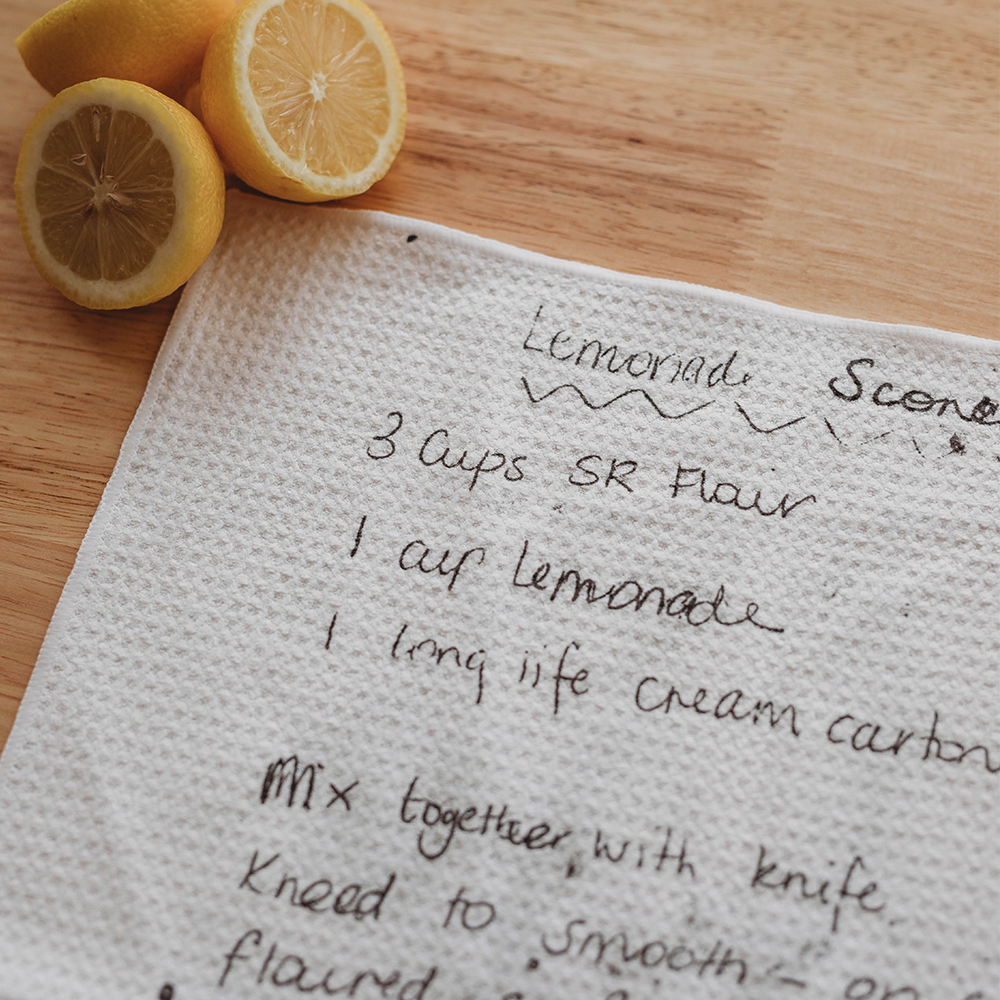 Lemonade Scone
3 Cups SR Flour
1 cup Lemonade
1 long life cream carton
Mix together with knife.
Kneed to smooth - on
floured